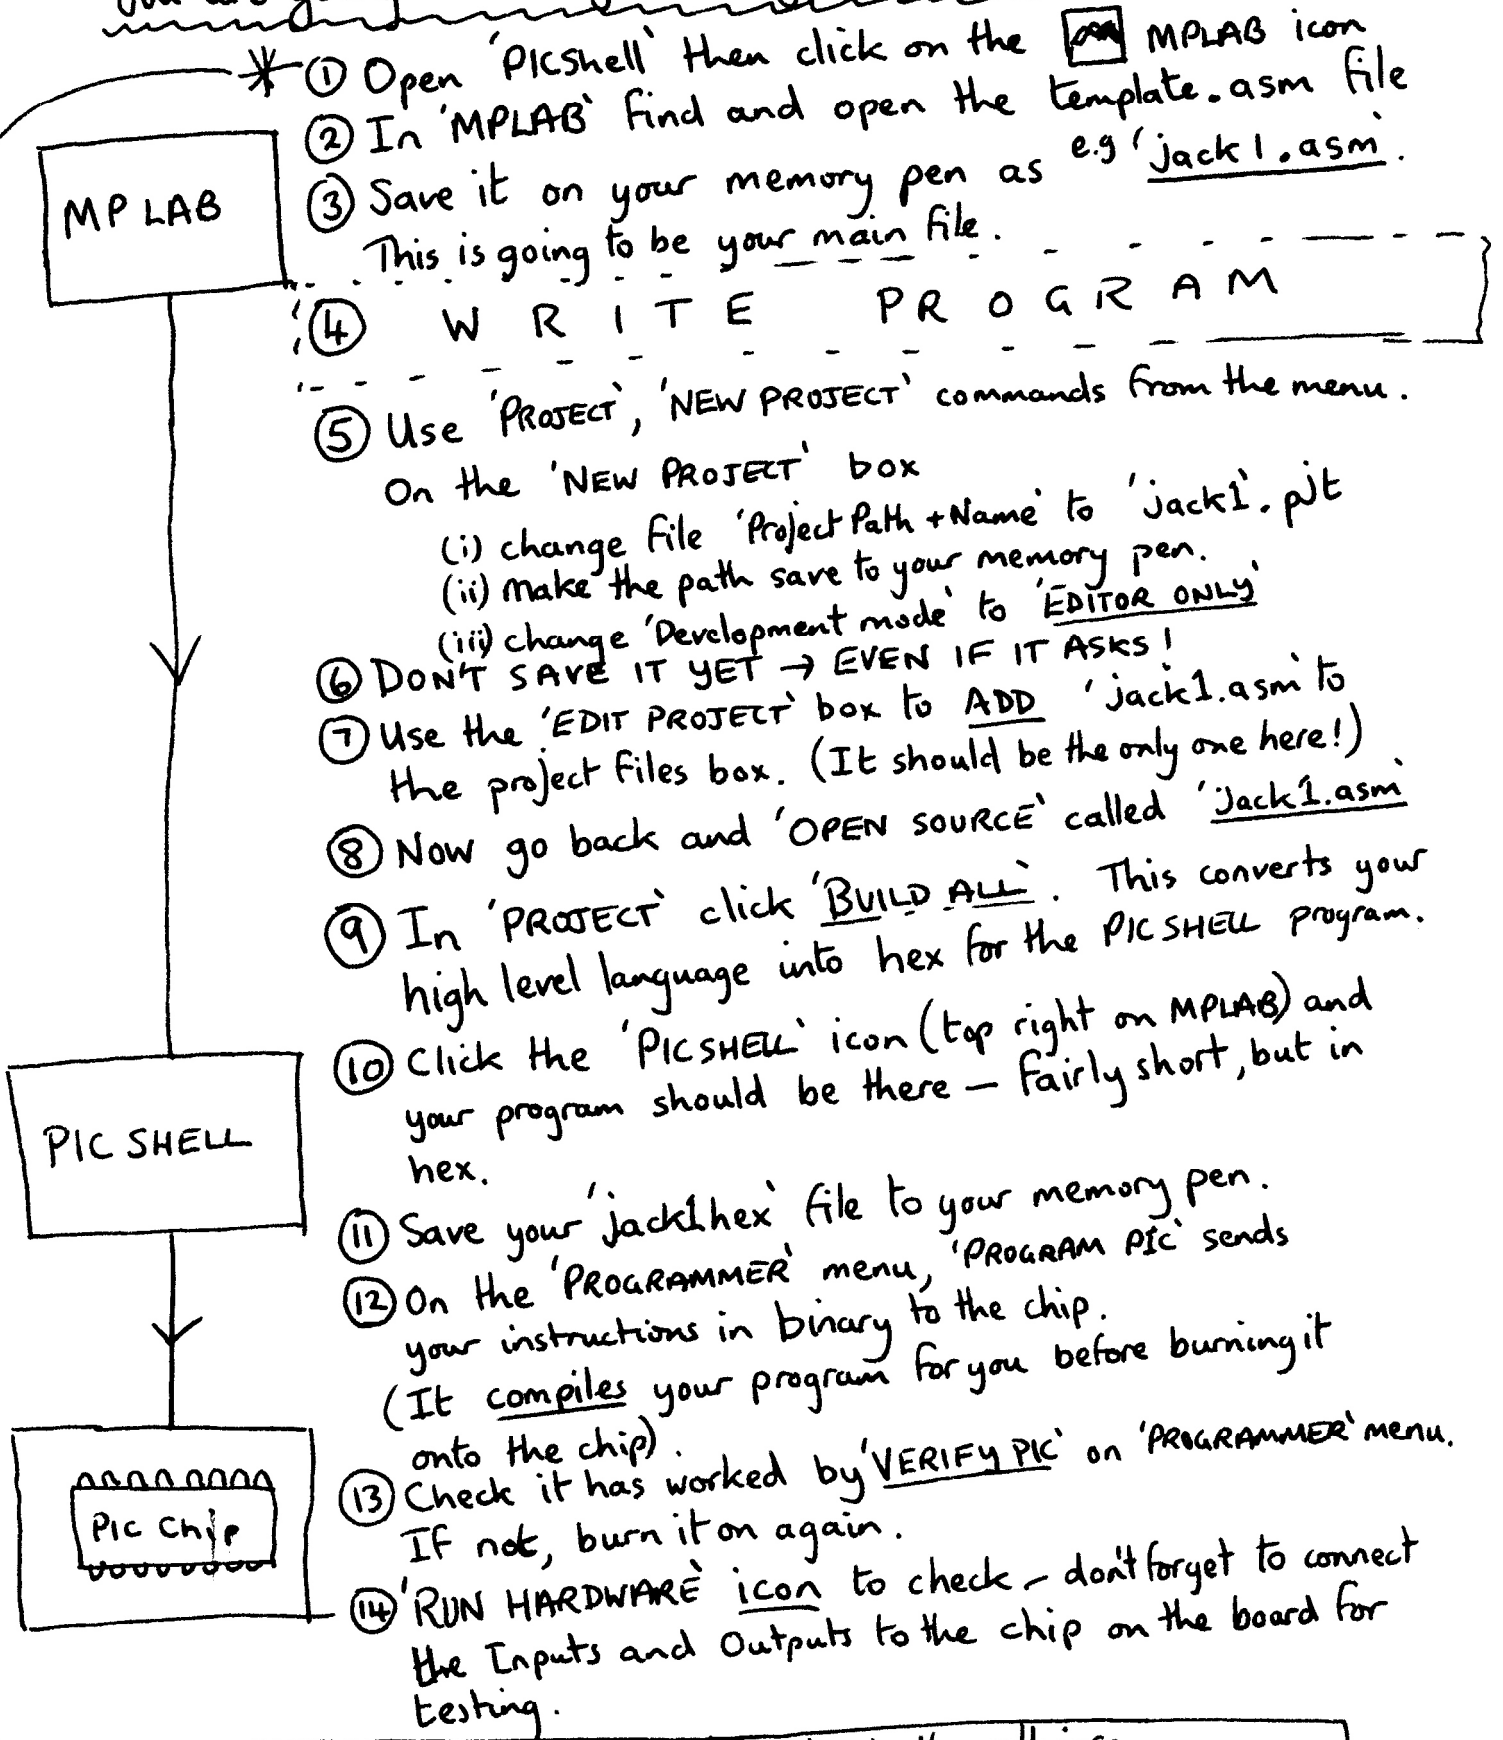 ① Open 'PICshell' then click on the MPLAB icon
② In 'MPLAB' find and open the template.asm file
③ Save it on your memory pen as e.g 'jack1.asm'.
This is going to be your main file.
MPLAB
④ WRITE PROGRAM
⑤ Use 'PROJECT', 'NEW PROJECT' commands from the menu.
On the 'NEW PROJECT' box
(i) change file 'Project Path + Name' to 'jack1'.pjt
(ii) make the path save to your memory pen.
(iii) change 'Development mode' to 'EDITOR ONLY'
⑥ DON'T SAVE IT YET → EVEN IF IT ASKS!
⑦ Use the 'EDIT PROJECT' box to ADD 'jack1.asm' to
the project files box. (It should be the only one here!)
⑧ Now go back and 'OPEN SOURCE' called 'jack1.asm'
⑨ In 'PROJECT' click 'BUILD ALL'. This converts your
high level language into hex for the PICSHELL program.
⑩ Click the 'PICSHELL' icon (top right on MPLAB) and
your program should be there – fairly short, but in
hex.
PIC SHELL
⑪ Save your 'jack1hex' file to your memory pen.
⑫ On the 'PROGRAMMER' menu, 'PROGRAM PIC' sends
your instructions in binary to the chip.
(It compiles your program for you before burning it
onto the chip).
⑬ Check it has worked by 'VERIFY PIC' on 'PROGRAMMER' menu.
If not, burn it on again.
PIC Chip
⑭ 'RUN HARDWARE' icon to check – don't forget to connect
the Inputs and Outputs to the chip on the board for
testing.